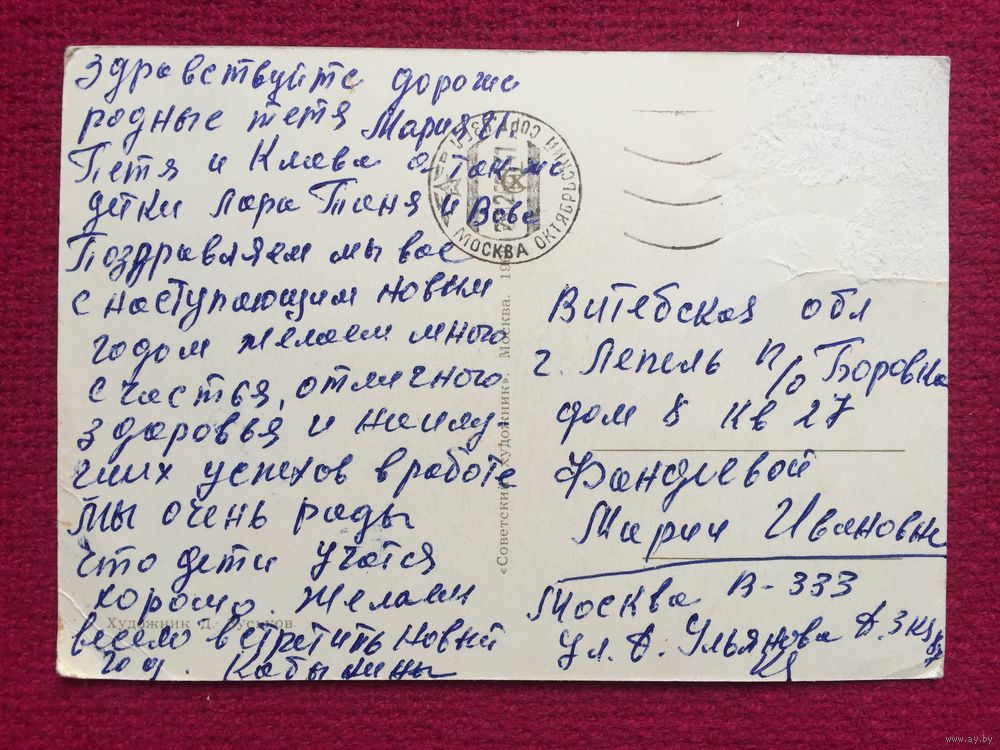 Здравствуйте дорогие
родные тетя Мария
Петя и Клава а также
детки Лара Таня и Вова
Поздравляем мы вас
с наступающим новым
годом желаем много
счастья, отличного
здоровья и наилу
чших успехов в работе
Мы очень рады
что дети учатся
хорошо. Желаем
весело встретить новый
год. Кабылины
Художник Д. Буськов
«Советский художник». Москва. 19
МОСКВА ОКТЯБРЬСКИЙ
Витебская обл
г. Лепель п/о Боровка
дом 8 кв 27
Марии Ивановне
Москва В-333
Ул. Д. Ульянова Д. 3
www.ay.by